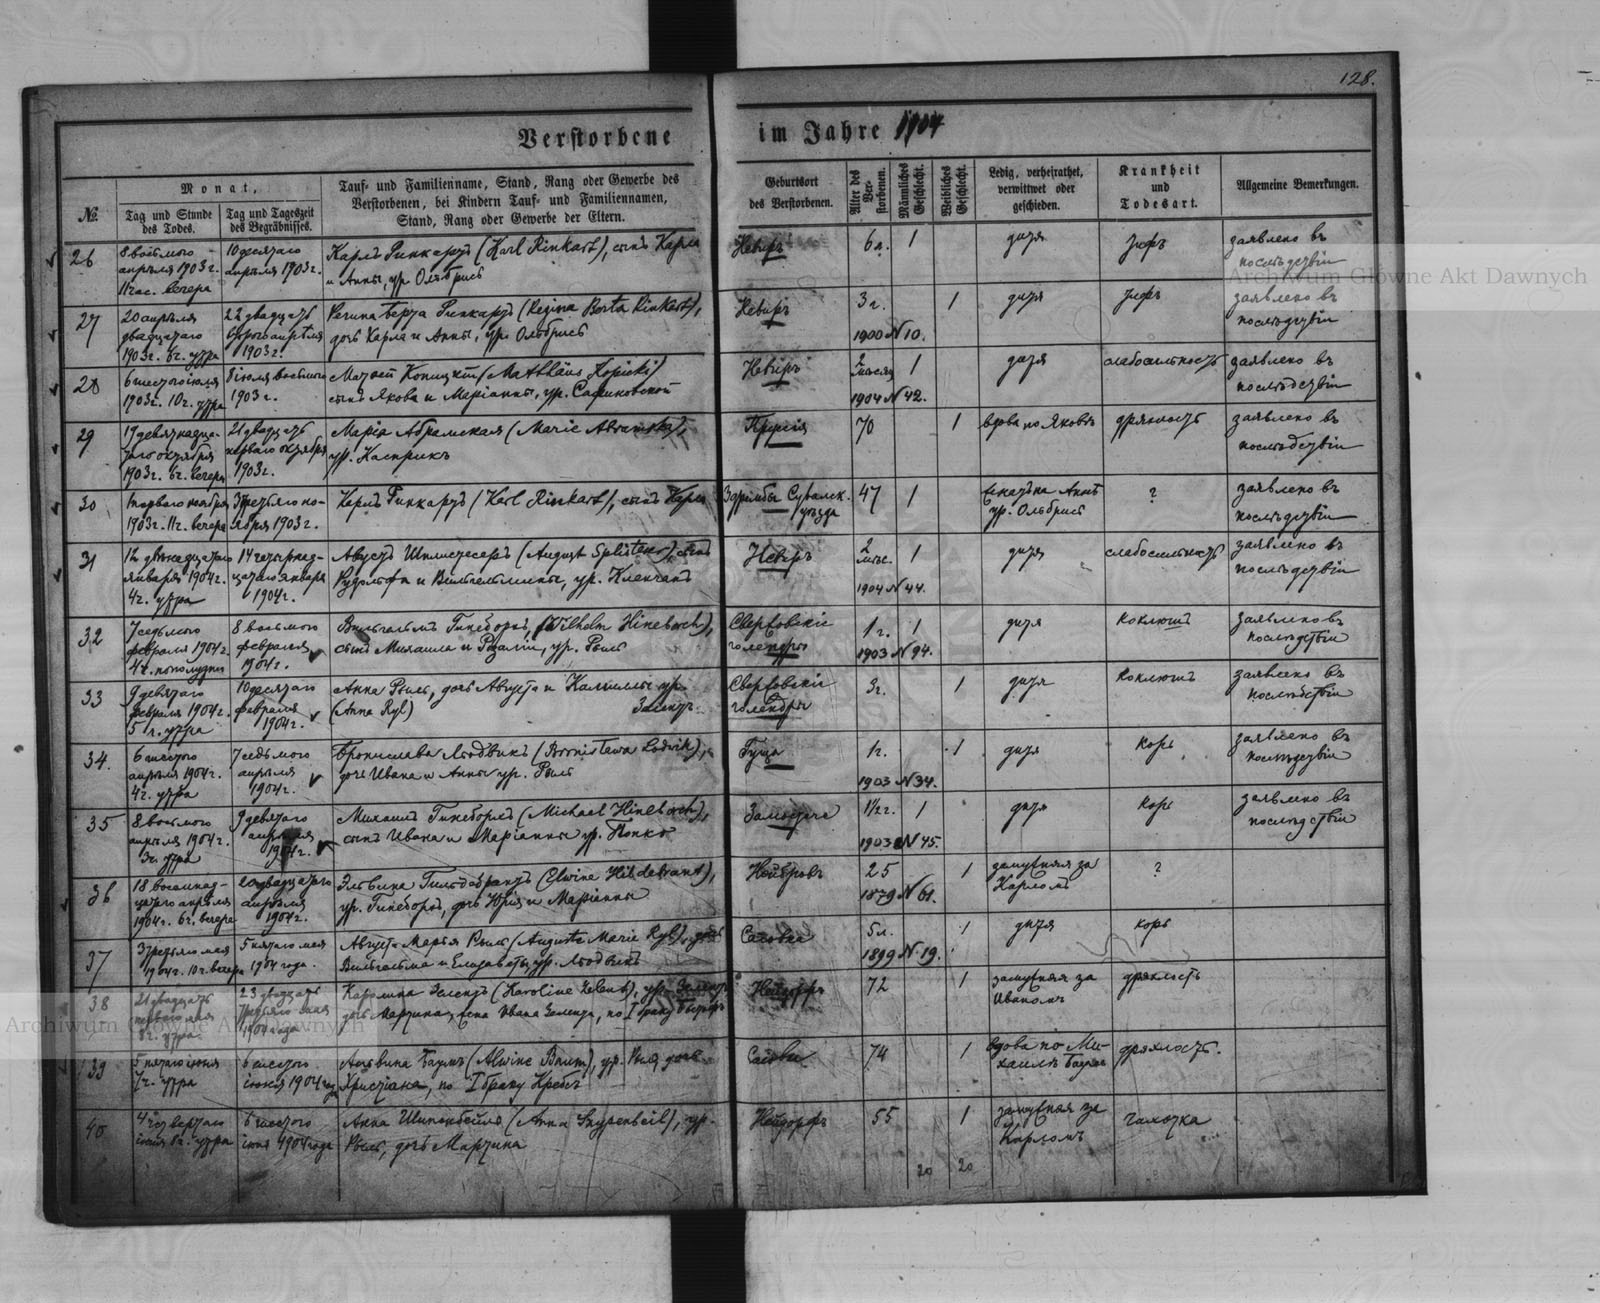 128.
Verstorbene im Jahre 1904
№
Monat,
Tag und Stunde des Todes.
Tag und Tageszeit des Begräbnisses.
Tauf- und Familienname, Stand, Rang oder Gewerbe des
Verstorbenen, bei Kindern Tauf- und Familiennamen,
Stand, Rang oder Gewerbe der Eltern.
Geburtsort
des Verstorbenen.
Alter des Ver-storbenen.
Männliches Geschlecht.
Weibliches Geschlecht.
Ledig, verheirathet,
verwittwet oder
geschieden.
Krankheit
und
Todesart.
Allgemeine Bemerkungen.
26 8 восьмого 10 десятаго Карлъ Ринкартъ (Karl Rinkart), сынъ Карла Невиръ 6 л. 1 дитя тифъ заявлено въ
апрѣля 1903 г. апрѣля 1903 г. и Анны, ур. Ольбрисъ послѣдствіи
11 час. вечера
27 20 апрѣля 22 двадцать Регина Берта Ринкартъ (Regina Berta Rinkart), Невиръ 3 г. 1 дитя тифъ заявлено въ
двадцатаго второго апрѣля дочь Карла и Анны, ур. Ольбрисъ 1900 N 10. послѣдствіи
1903 г. 6 ч. утра 1903 г.
28 6 шестого іюля 8 іюля восьмого Матвей Копицкій (Matthäus Kopicki) Невиръ 2 мѣсяц 1 дитя слабосильность заявлено въ
1903 г. 10 ч. утра 1903 г. сынъ Якова и Маріанны, ур. Садиковской 1904 N 42. послѣдствіи
29 19 девятнадца- 21 двадцать Марія Абрамская (Marie Abramska), Пруссія 70 1 вдова по Яковѣ дряхлость заявлено въ
таго октября перваго октября ур. Касприкъ послѣдствіи
1903 г. 6 ч. вечера 1903 г.
30 1 перваго ноября 3 третьяго но- Карлъ Ринкартъ (Karl Rinkart), сынъ Карла Сувалск. 47 1 Анна ? заявлено въ
1903 г. 11 ч. вечера ября 1903 г. уѣзда ур. Ольбрисъ послѣдствіи
31 12 двѣнадцатаго 14 четырнад- Августъ Шплистесеръ (August Splisteser), сынъ Невиръ 2 мѣс. 1 дитя слабосильность заявлено въ
января 1904 г. цатаго января Рудольфа и Вильгельмины, ур. Клекчанъ 1904 N 44. послѣдствіи
4 ч. утра 1904 г.
32 7 седьмого 8 восьмого Вильгельмъ Гинеборхъ (Wilhelm Hineborch), Свержовскіе 1 г. 1 дитя коклюшъ заявлено въ
февраля 1904 г. февраля сынъ Михаила и Розаліи, ур. Рыль голендры 1903 N 94. послѣдствіи
4 ч. пополудни 1904 г.
33 9 девятаго 10 десятаго Анна Рыль, дочь Августа и Камиллы ур. Свержовскіе 3 г. 1 дитя коклюшъ заявлено въ
февраля 1904 г. февраля (Anna Ryl) Зелентъ голендры послѣдствіи
5 ч. утра 1904 г.
34. 6 шестого 7 седьмого Бронислава Людвикъ (Bronislawa Ludwik), Гуща 1 г. 1 дитя корь заявлено въ
апрѣля 1904 г. апрѣля дочь Ивана и Анны ур. Рыль 1903 N 34. послѣдствіи
4 ч. утра 1904 г.
35 8 восьмого 9 девятаго Михаилъ Гинеборхъ (Michael Hineborch), 1 1/2 г. 1 дитя корь заявлено въ
апрѣля 1904 г. апрѣля сынъ Ивана и Маріанны ур. Попко 1903 N 45. послѣдствіи
3 ч. утра 1904 г.
36 18 восемнад- 20 двадцатаго Эльвина Гильдебрантъ (Elwine Hildebrant), Нейбровъ 25 1 замужняя за ?
цатаго апрѣля апрѣля ур. Гинеборхъ, дочь Юрія и Маріанны 1879 N 61. Карломъ
1904 г. 6 ч. вечера 1904 г.
37 3 третьяго мая 5 пятаго мая Августа Марья Рыль (Auguste Marie Ryl), дочь Сасовка 5 л. 1 дитя корь
1904 г. 10 ч. вечера 1904 года. Вильгельма и Елизаветы, ур. Людвикъ 1899 N 19.
38 21 двадцать 23 двадцать Каролина Зелентъ (Karoline Zelent), ур. Зелентъ, Нейдорфъ 72 1 замужняя за дряхлость
перваго мая третьяго мая дочь Мартина, жена Ивана Зелента, по I браку Иваномъ
8 ч. утра 1904 года
39 5 пятаго іюня 6 шестого Альвина Баумъ (Alwine Baum), ур. Рыль, дочь Сасовка 74 1 вдова по Ми- дряхлость.
7 ч. утра іюня 1904 года Христіана, по I браку Кребсъ хаилѣ Баумъ
40 4 четвертаго 6 шестого Анна Шипенбейль (Anna Szypenbeil), ур. Нейдорфъ 55 1 замужняя за чахотка
іюня 8 ч. утра іюня 1904 года Рыль, дочь Мартина Карломъ
20 20
Archiwum Główne Akt Dawnych
Archiwum Główne Akt Dawnych